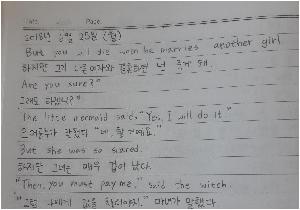 Date. Page.
2018년 6월 25일 (월)
But you will die when he marries another girl
하지만 그가 다른 여자와 결혼하면 넌 죽게 돼.
Are you sure?"
그래도 하겠니?"
The little mermaid said, "Yes, I will do it."
인어공주가 말했다 "네, 할 거예요."
But she was so scared.
하지만 그녀는 매우 겁이 났다.
"Then, you must pay me," said the witch.
"그럼 나에게 값을 치러야지." 마녀가 말했다